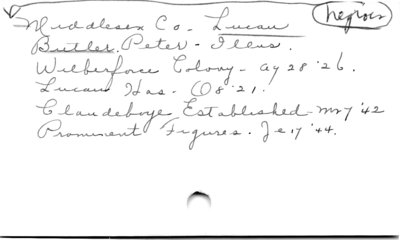 Negroes
Middlesex Co - Lucan
Butler, Peter - Illus.
Wilberforce Colony - Ag 28 '26.
Lucan Has - O 8 '21.
Clandeboye Established - Mr 7 '42
Prominent Figures. Je 17 '44.